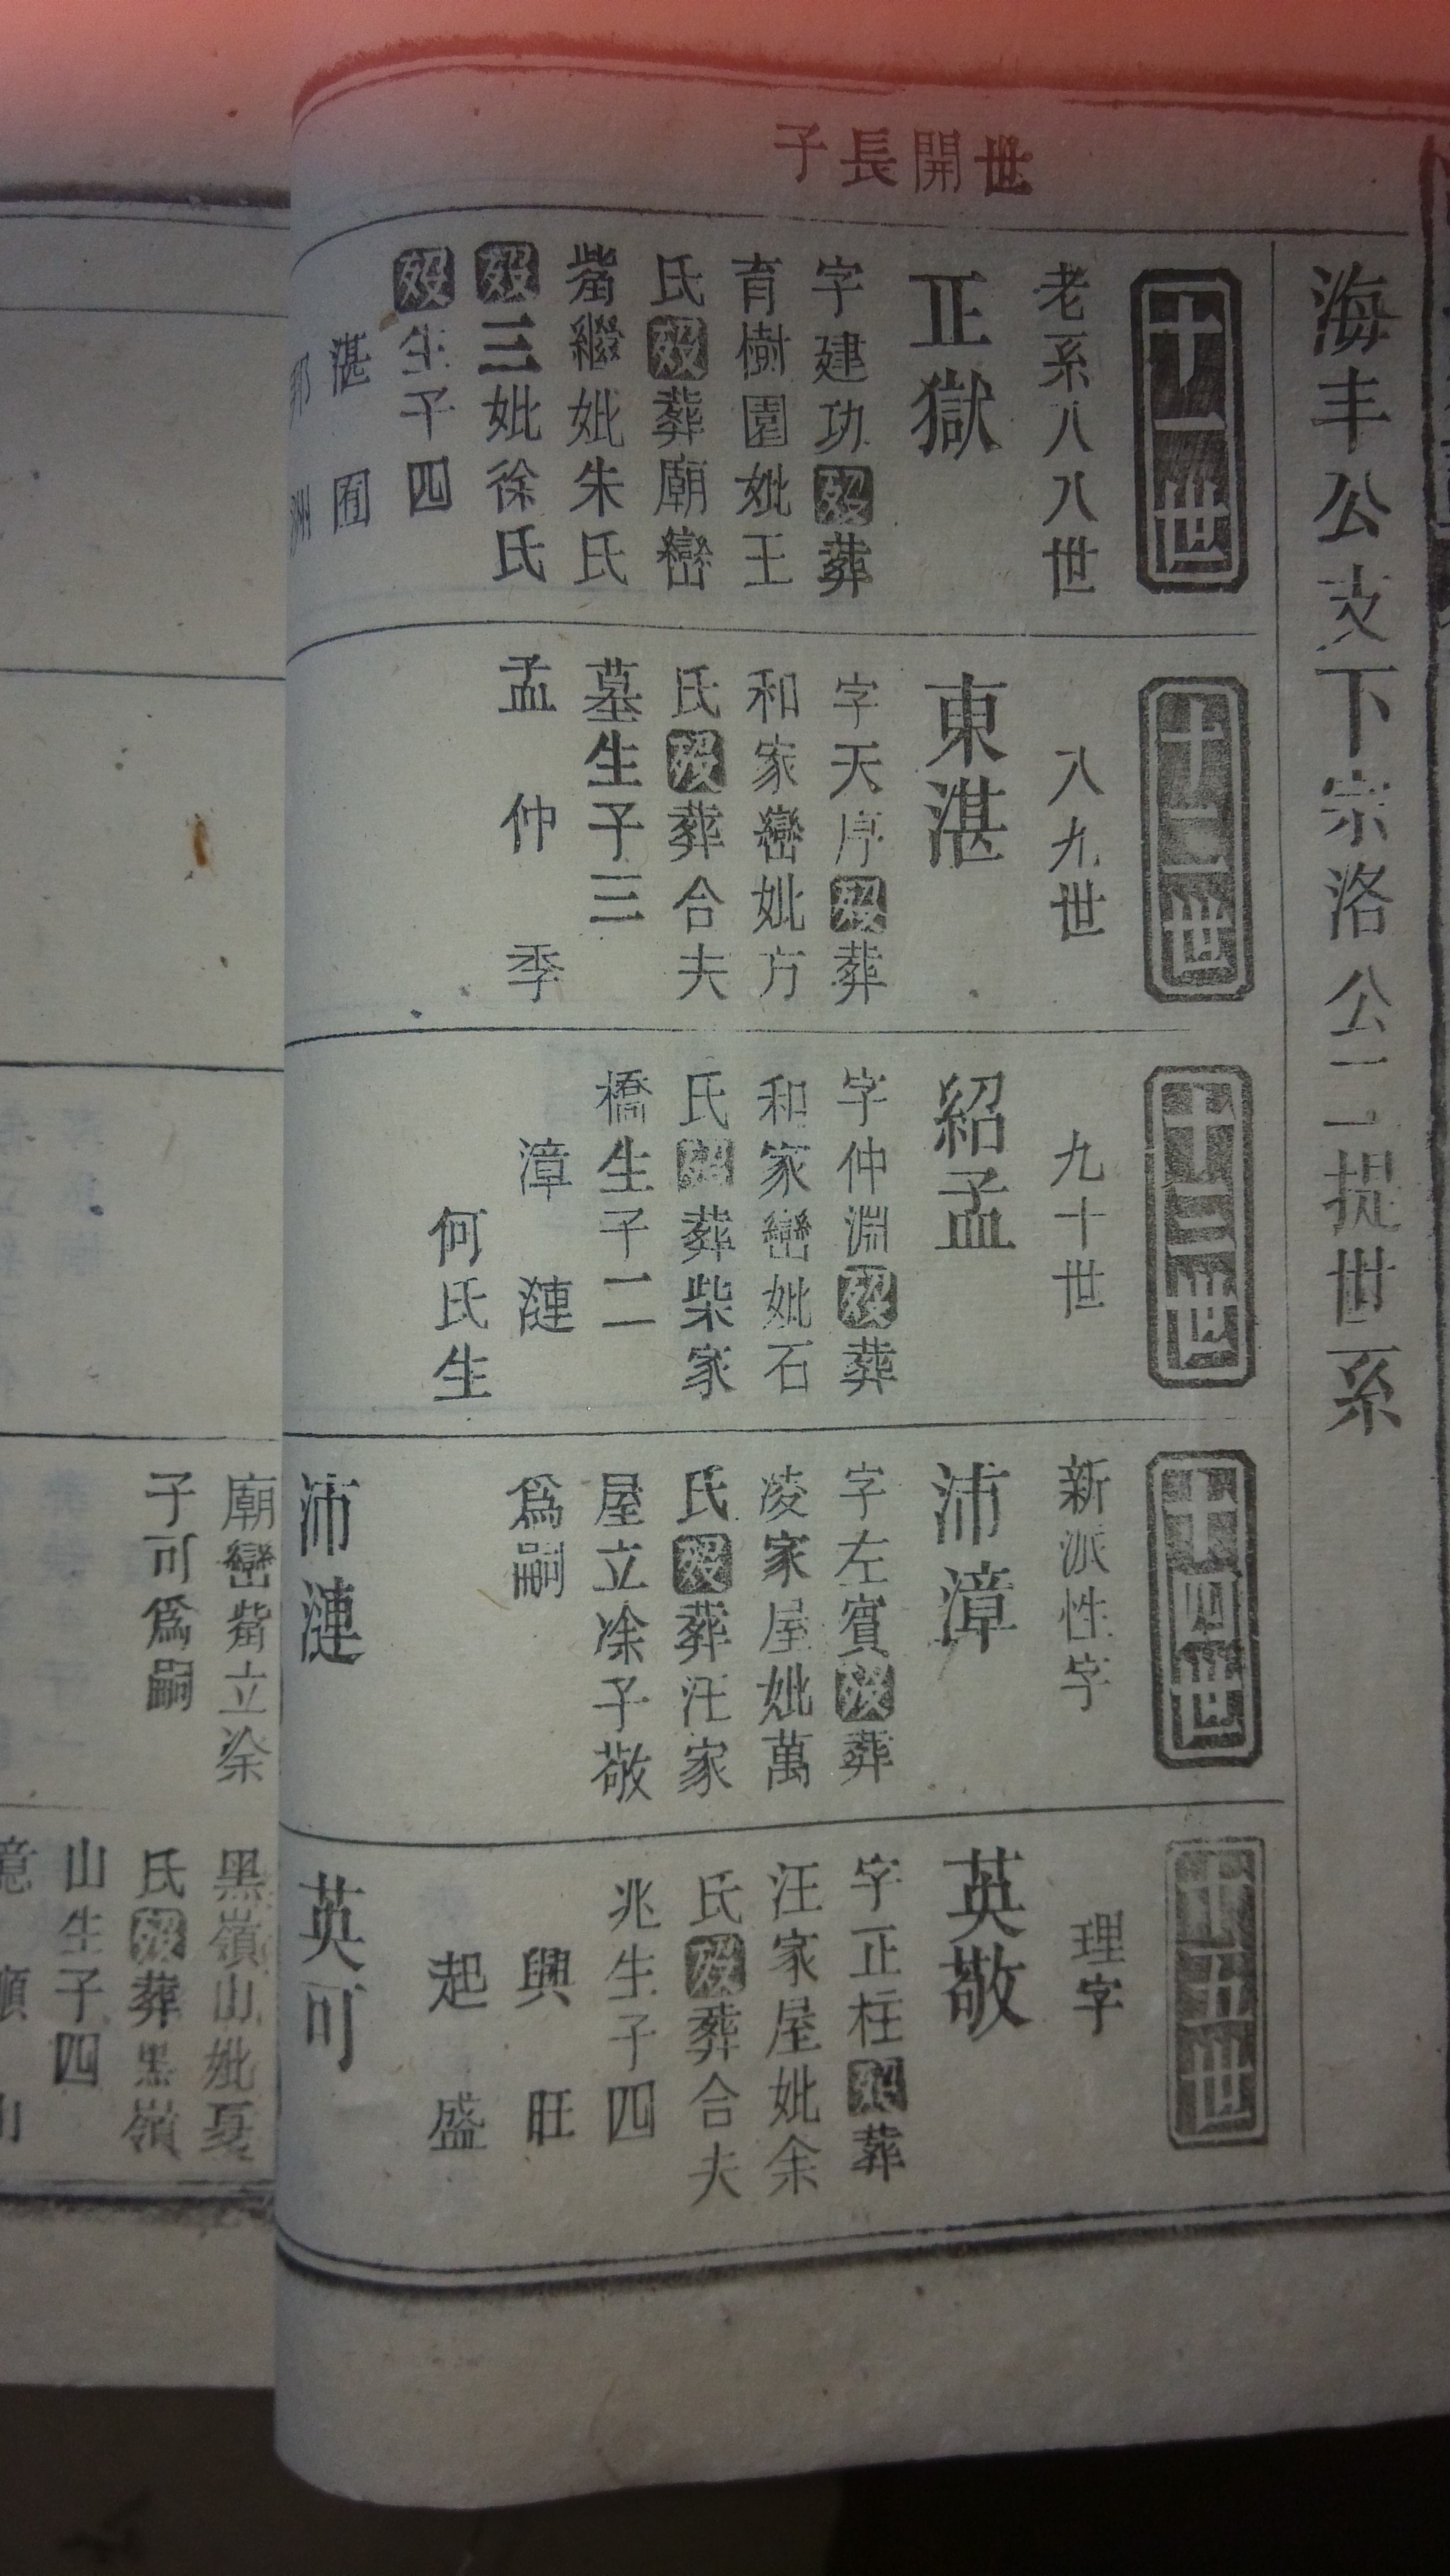 海丰公支下宗洛公一二提世系
世開長子
十一世
老系八八世
正獄
字建功歿葬
育樹園妣王
氏歿葬廟巒
嵴繼妣朱氏
歿三妣徐氏
歿生子四
湛 囿
邦 洲
十二世
八九世
東湛
字天序歿葬
和家巒妣方
氏歿葬合夫
墓生子三
孟 仲 季
十三世
九十世
紹孟
字仲淵歿葬
和家巒妣石
氏歿葬柴家
橋生子二
漳 漣
何氏生
十四世
新派性字
沛漳
字左賓歿葬
凌家屋妣萬
氏歿葬汪家
屋立凃子敬
爲嗣
沛漣
廟巒嵴立凃
子可爲嗣
十五世
理字
英敬
字正柱歿葬
汪家屋妣余
氏歿葬合夫
兆生子四
興 旺
起 盛
英可
黑嶺山妣夏
氏歿葬黑嶺
山生子四
意 順 山